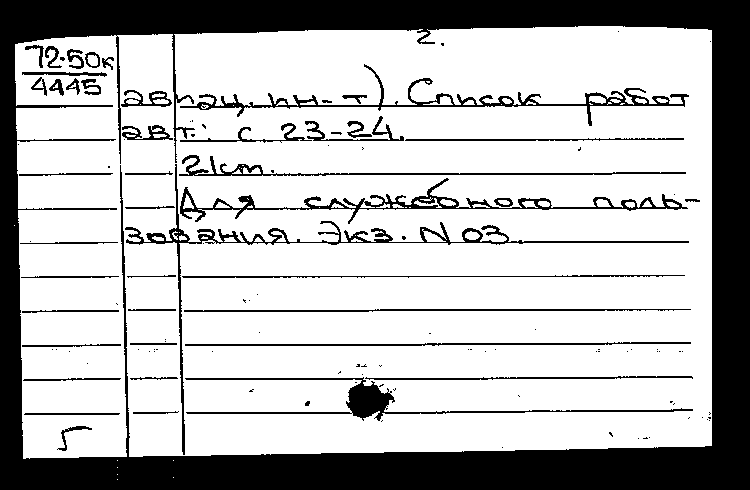 2.
72-50к
4445
авиац. ин-т). Список работ
авт.: с 23-24.
21см.
Для служебного поль-
зования. Экз. N 03.
5